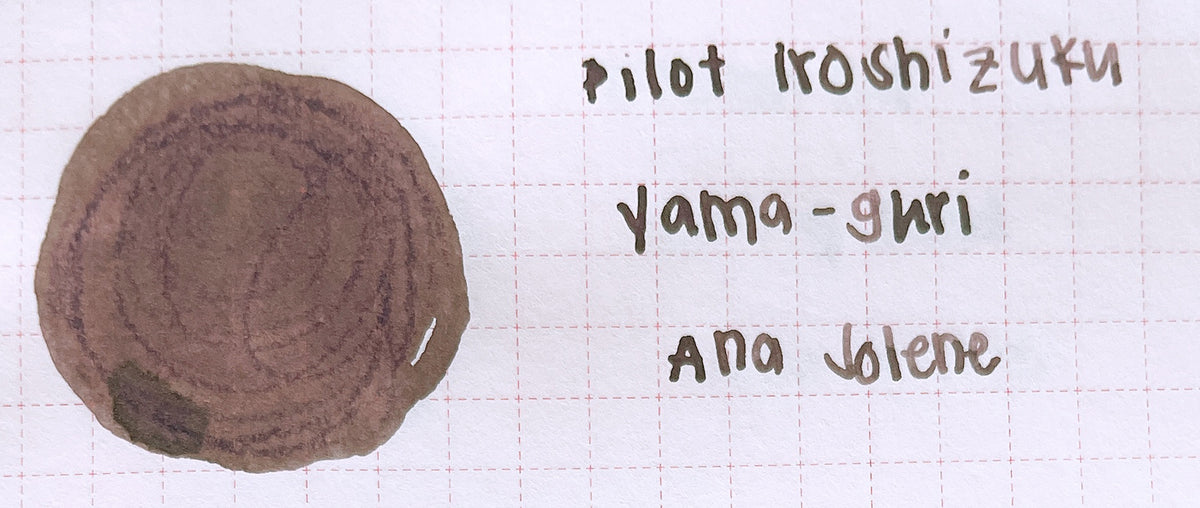 Pilot Iroshizuku
yama-guri
Ana Jolene